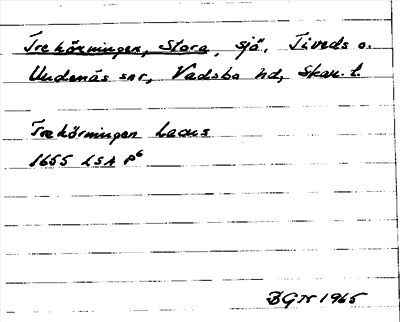 Trehörningen, Stora, sjö, Tiveds o.
Undenäs snr, Vadsbo hd, Skar. l.
Trehörningen Lacus
1655 LSA P6
BGN 1965